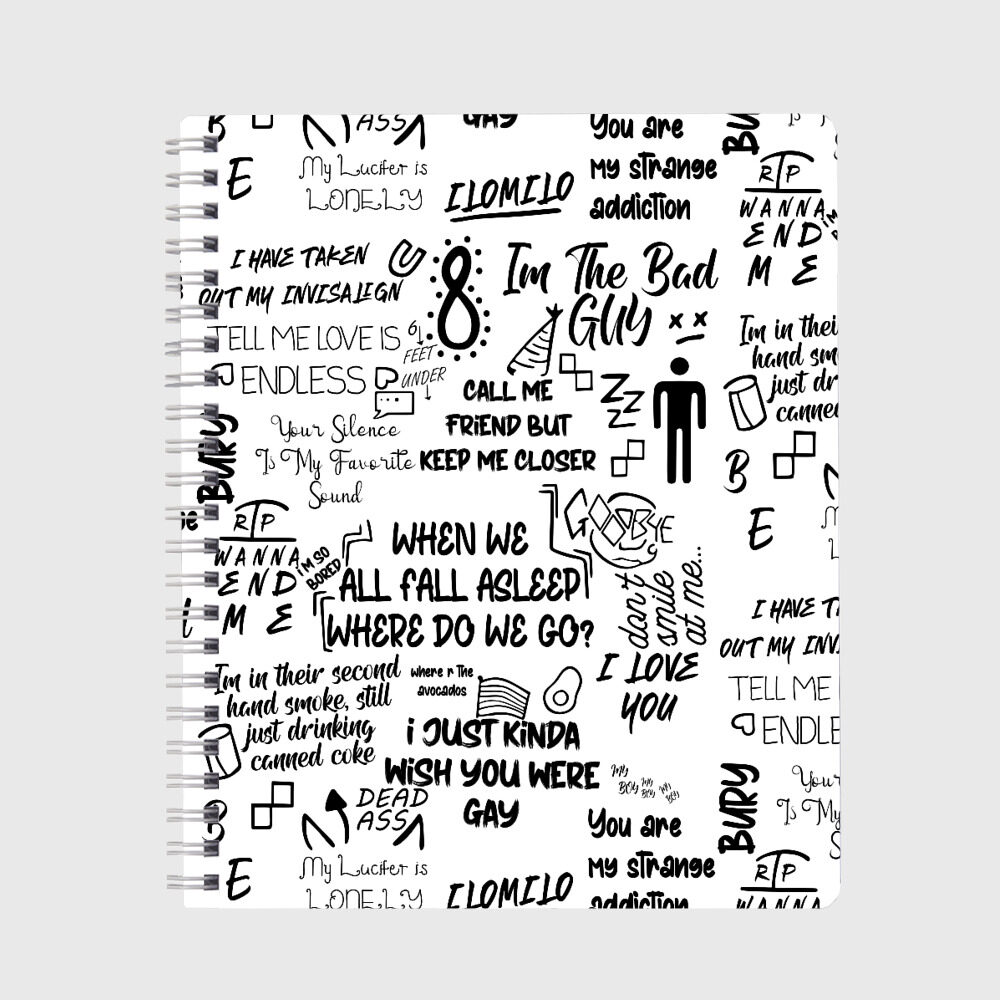 B
ASS
GAY
You are
My strange
addiction
BURY
Is
RIP
WANNA
END
ME
E
My Lucifer is
LONELY
ILOMILO
I HAVE TAKEN
OUT MY INVISALIGN
8
Im The Bad
GUY
TELL ME LOVE IS
ENDLESS
6
FEET
UNDER
CALL ME
FRIEND BUT
KEEP ME CLOSER
ZZZ
Im in thei
hand sm
just dr
canne
Your Silence
Is My Favorite
Sound
BURY
B
E
RIP
WANNA
END
ME
I'M SO
BORED
WHEN WE
ALL FALL ASLEEP
WHERE DO WE GO?
GOODBYE
don't
smile
at me...
I HAVE T
OUT MY INV
TELL ME
ENDLE
Im in their second
hand smoke, still
just drinking
canned coke
where r The
avocados
I LOVE
YOU
i JUST KINDA
WISH YOU WERE
GAY
MY
BOY
MY
BOY
MY
BOY
DEAD
ASS
E
My Lucifer is
LONELY
ILOMILO
You are
My strange
addiction
BURY
Your
Is My
S
RIP
WANNA